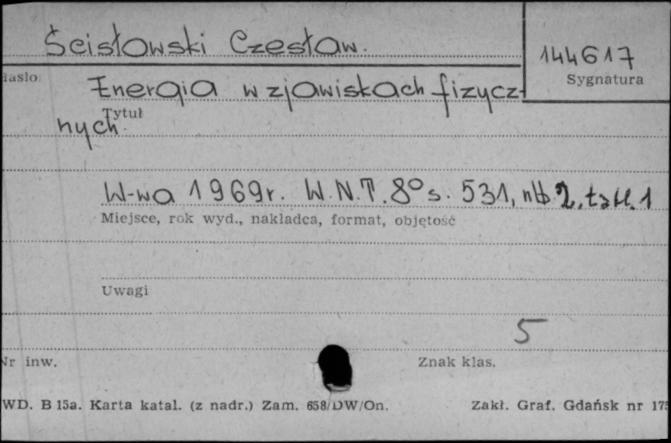 Ścisłowski Czesław.
144617
Sygnatura
hasło
Energia w zjawiskach fizycz-
Tytuł
nych.
W-wa 1969r. W.N.T. 8° s. 531, nlb 2, tabl. 1
Miejsce, rok wyd., nakładca, format, objętość
Uwagi
5
Nr inw.
Znak klas.
WD. B 15a. Karta katal. (z nadr.) Zam. 658/DW/On.
Zakł. Graf. Gdańsk nr 175